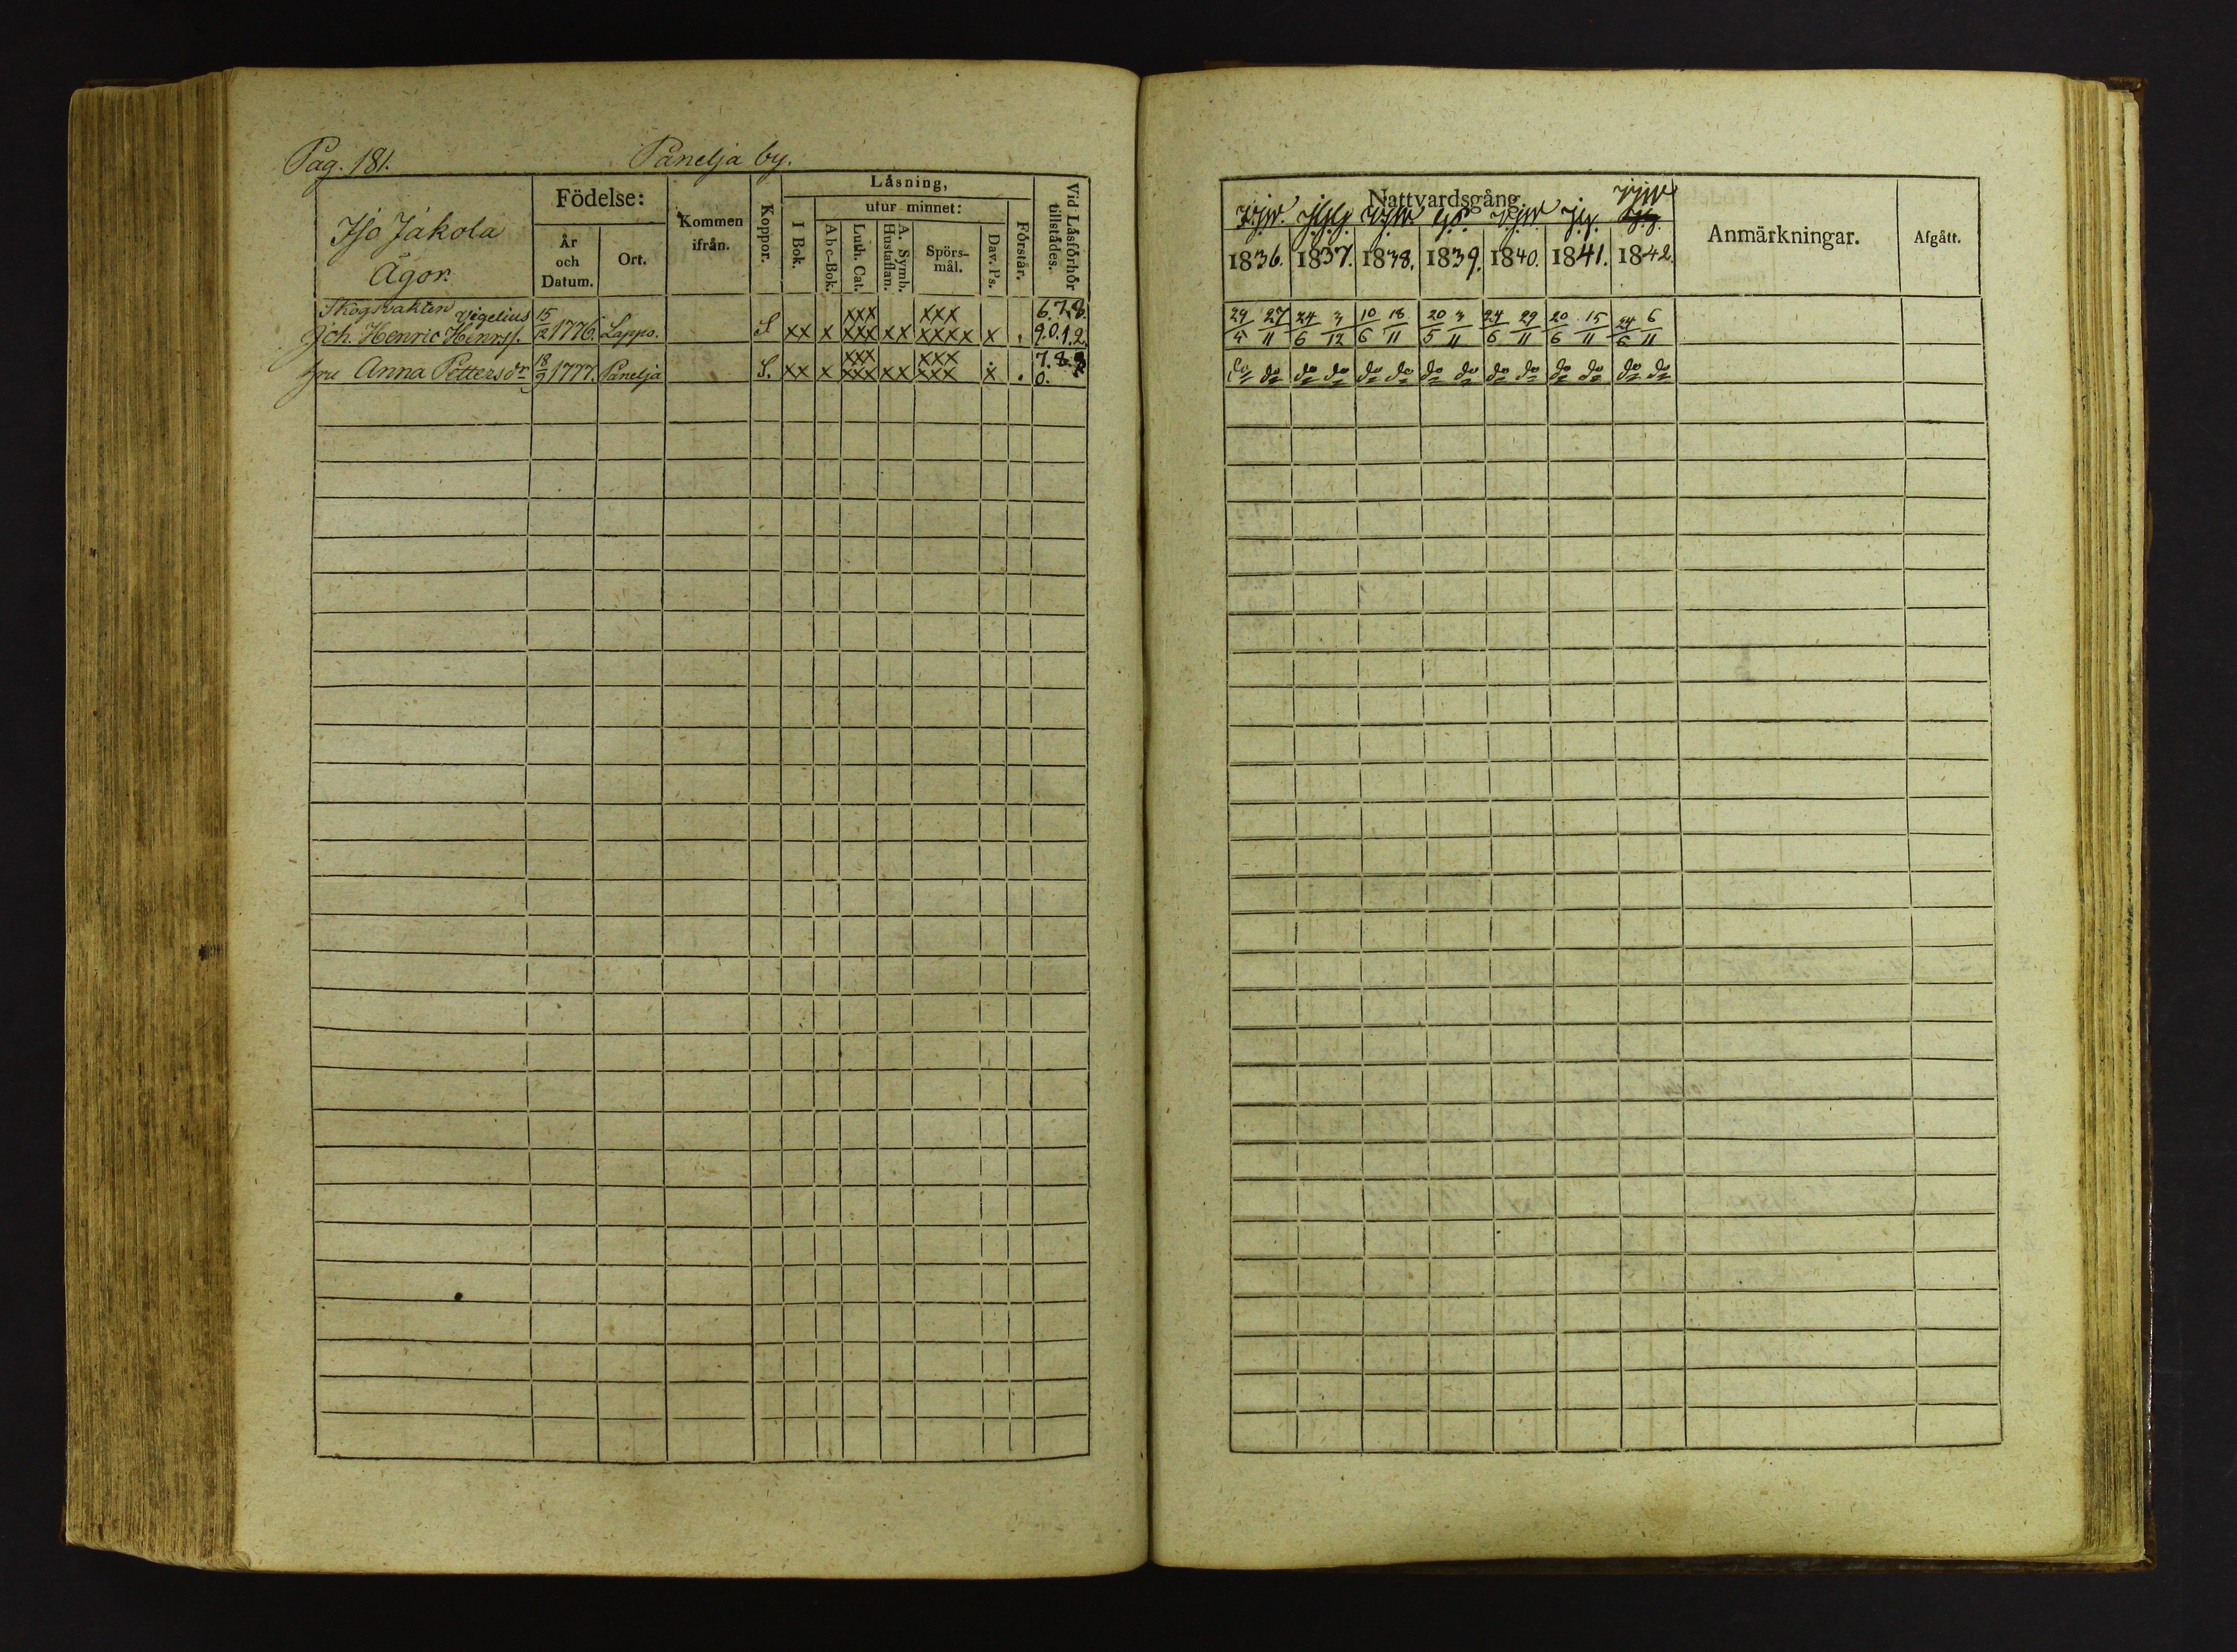 Pag. 181.
Panelja by.
Iso Jakola
Ägor.
Födelse:
År
och
Datum.
Ort.
Kommen
ifrån.
Koppor.
Låsning,
I Bok.
utur minnet:
Abc-Bok.
Luth. Cat.
A. Symb.
Hustaflan.
Spörs-
mål.
Dav. Ps.
Förstår.
Vid Låsförhör
tillstädes.
Skogsvakten Vigelius 15 xxx xxx 6.7.8.
Joh. Henric Henrss. 12 1776. Lappo. S xx x xxx xx xxxx x . 9.0.1.2.
18 xxx xxx 7.8.9
hru Anna Pettersdr 9 1777. Panelja S. xx x xxx xx xxx x . 0.
Nattvardsgång.
1836. 1837. 1838. 1839. 1840. 1841. 1842.
Anmärkningar.
Afgått.
29 27 24 3 10 18 20 3 24 29 20 15 24 6
11 6 12 6 11 5 11 6 11 6 11 6 11
do do do do do do do do do do do do do do